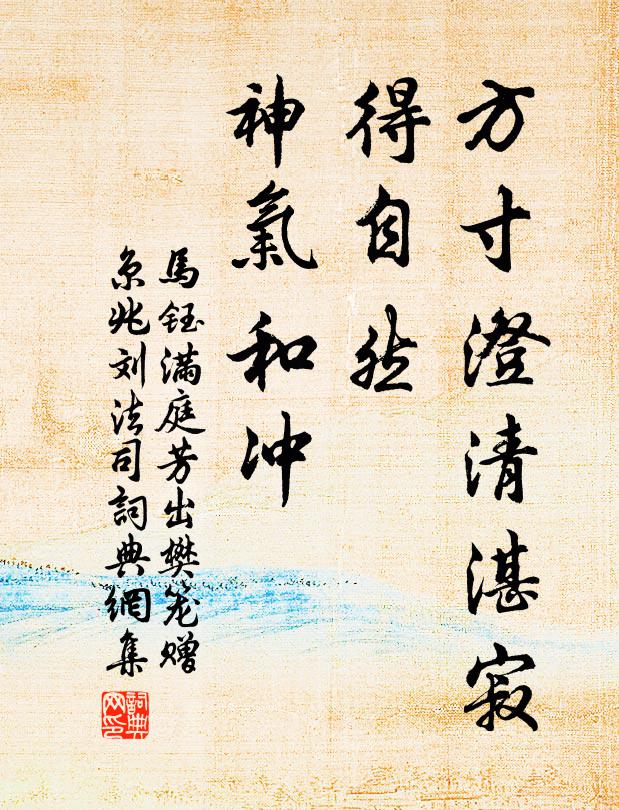 方寸澄清湛寂
得自然
神氣和冲
馬鈺满庭芳出樊笼赠
京兆刘法司詞典網集
詞典
网印